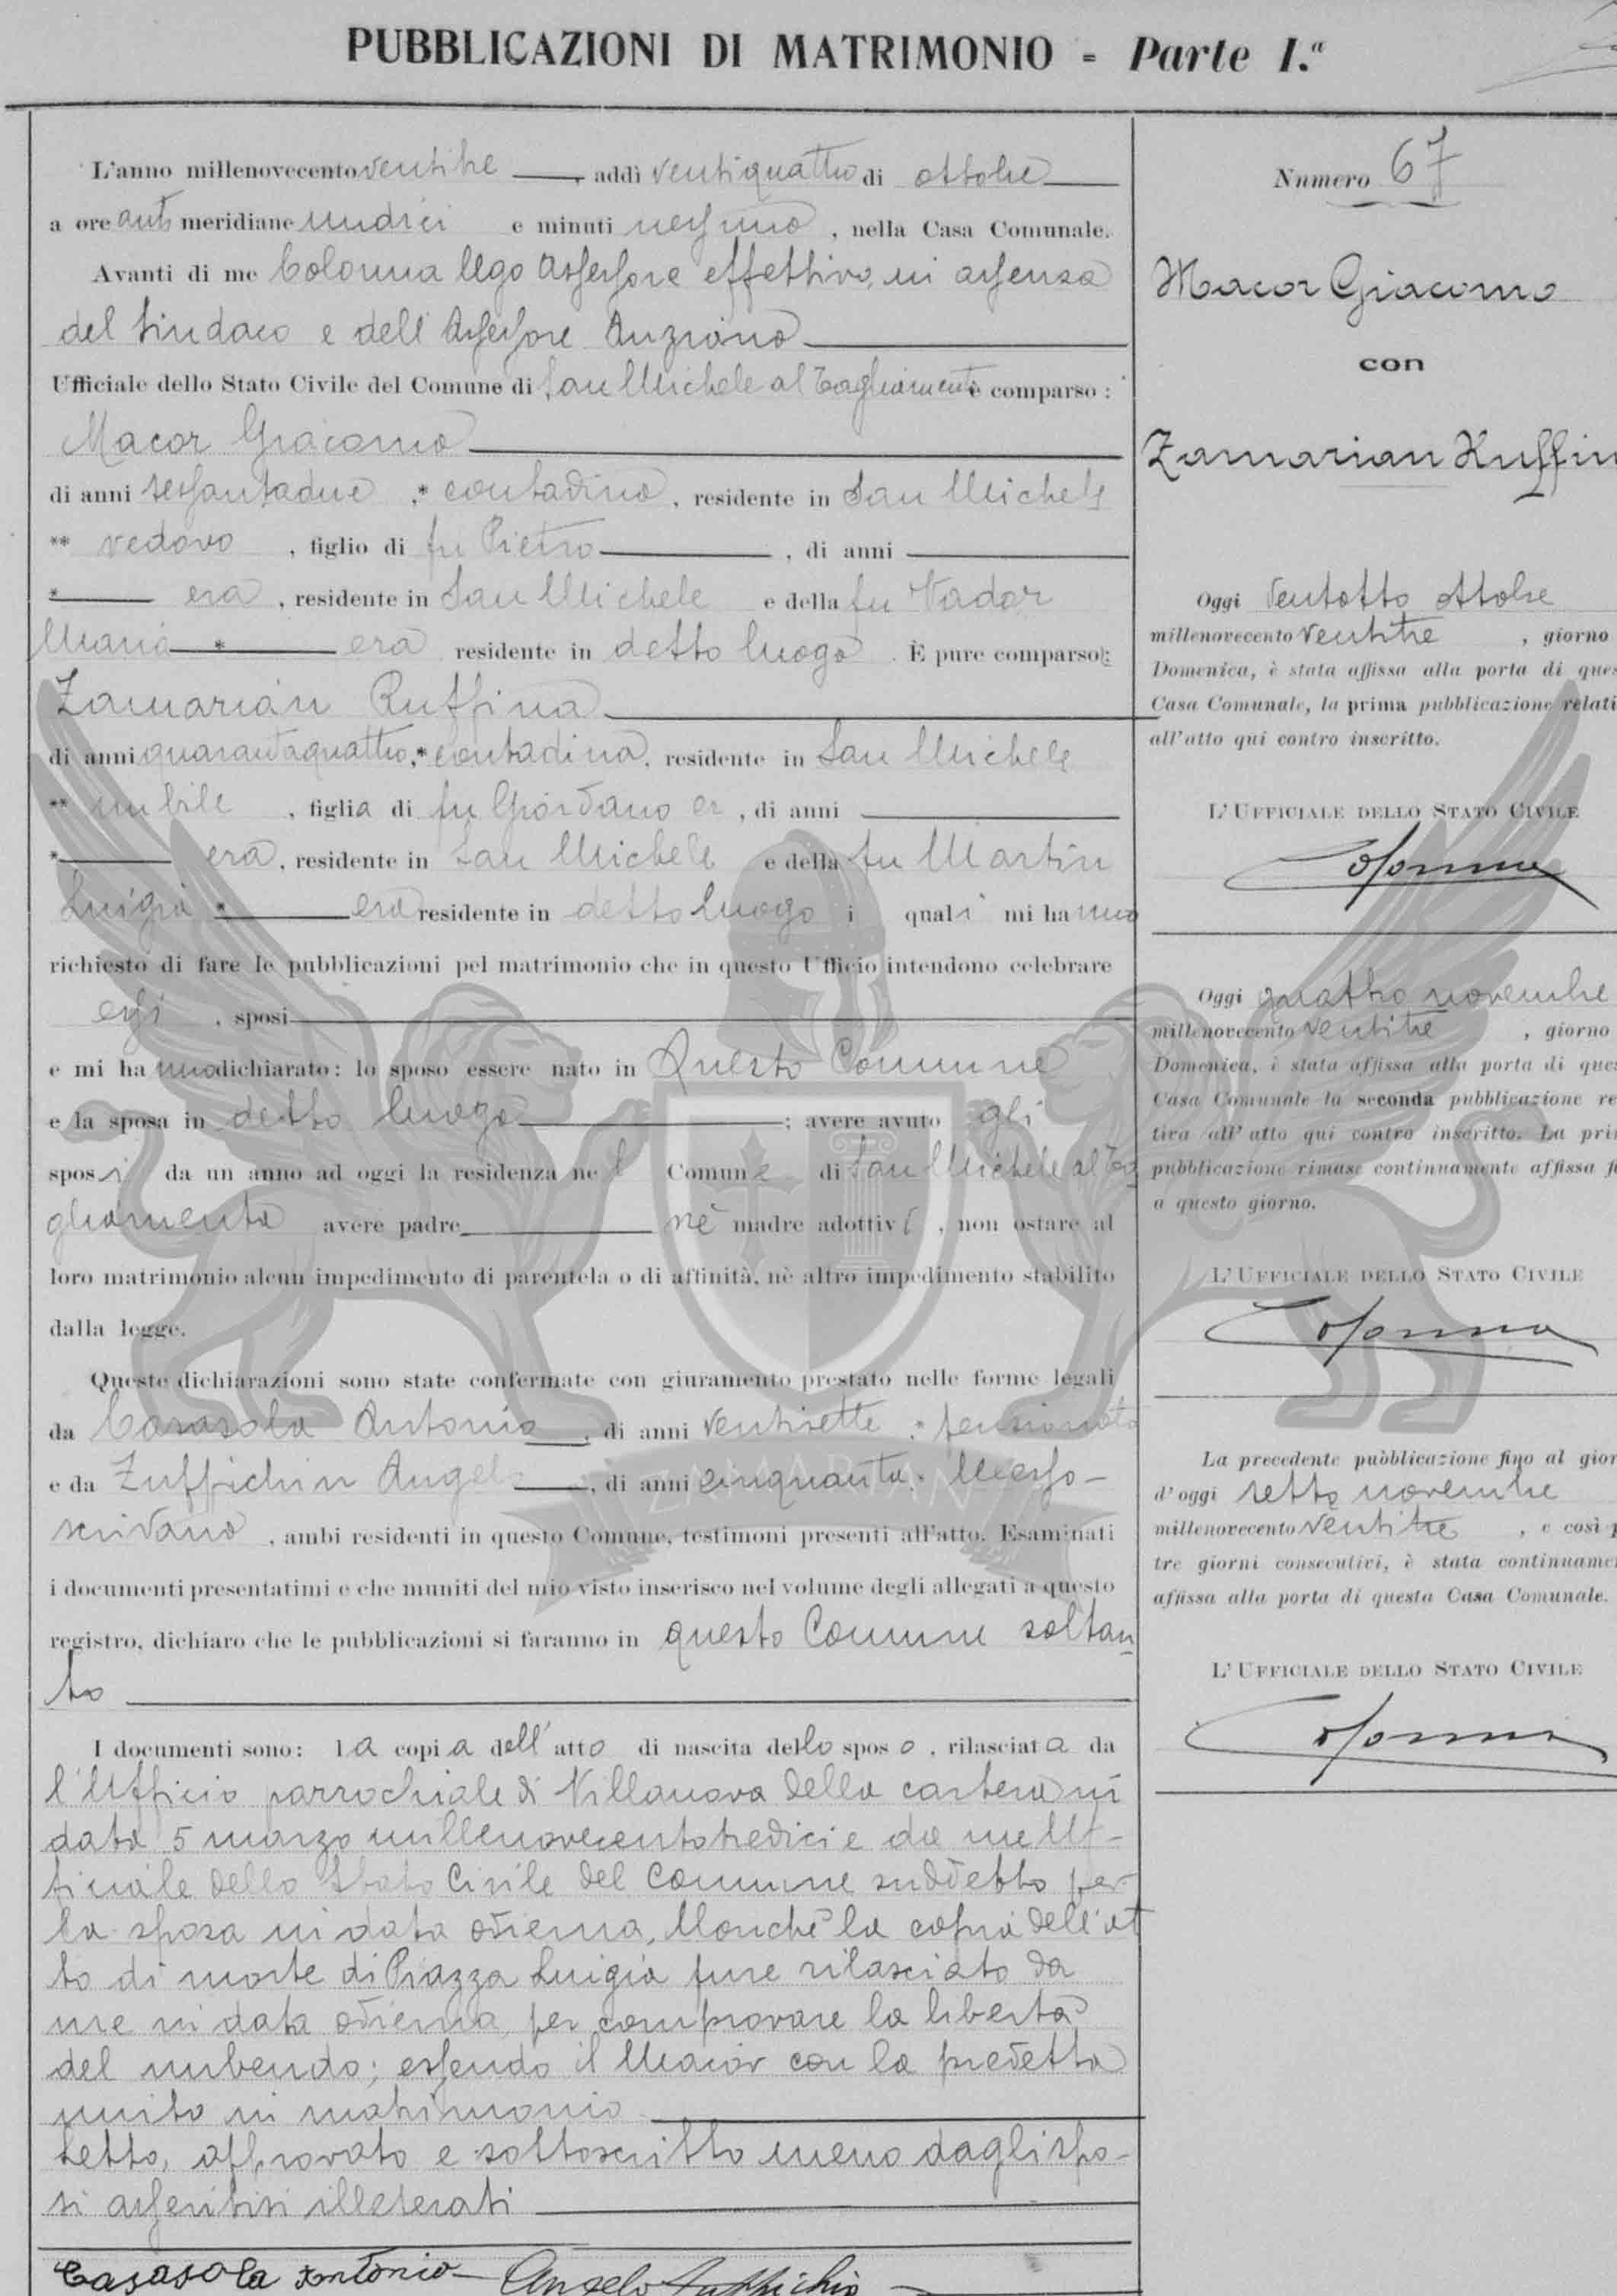 PUBBLICAZIONI DI MATRIMONIO - Parte I.ª
L'anno millenovecento ventitre, addì ventiquattro di ottobre
a ore anti meridiane undici e minuti nessuno, nella Casa Comunale.
Avanti di me Colonna Ugo Assessore effettivo, in assenza
del Sindaco e dell'Assessore Anziano
Ufficiale dello Stato Civile del Comune di San Michele al Tagliamento è comparso:
Macor Giacomo
di anni sessantadue, * contadino, residente in San Michele
** vedovo, figlio di fu Pietro, di anni
* era, residente in San Michele e della fu Nador
Maria * era residente in detto luogo. È pure comparso:
Zamarian Ruffina
di anni quarantaquattro, * contadina, residente in San Michele
** nubile, figlia di fu Giordano er, di anni
* era, residente in San Michele e della fu Martin
Luigia * era residente in detto luogo i quali mi hanno
richiesto di fare le pubblicazioni pel matrimonio che in questo Ufficio intendono celebrare
essi, sposi
e mi hanno dichiarato: lo sposo essere nato in Questo Comune
e la sposa in detto luogo; avere avuto gli
sposi da un anno ad oggi la residenza nel Comune di San Michele al Ta
gliamento avere padre nè madre adottivi, non ostare al
loro matrimonio alcun impedimento di parentela o di affinità, nè altro impedimento stabilito
dalla legge.
Queste dichiarazioni sono state confermate con giuramento prestato nelle forme legali
da Casasola Antonio, di anni ventisette, * pensionato
e da Zuffichin Angelo, di anni cinquanta, * Messo-
scrivano, ambi residenti in questo Comune, testimoni presenti all'atto. Esaminati
i documenti presentatimi e che muniti del mio visto inserisco nel volume degli allegati a questo
registro, dichiaro che le pubblicazioni si faranno in questo Comune soltan
to
I documenti sono: la copia dell'atto di nascita dello sposo, rilasciata da
l'Ufficio parrochiale di Villanova della cartera in
data 5 marzo millenovecentotredici e da me Uf-
ficiale dello Stato Civile del Comune suddetto per
la sposa in data odierna, Nonchè la copia dell'at
to di morte di Piazza Luigia pure rilasciato da
me in data odierna, per comprovare la libertà
del nubendo; essendo il Macor con la predetta
unito in matrimonio
Letto, approvato e sottoscritto meno dagli spo-
si assentisi illeterati
Casasola Antonio Angelo Zuffichin
Numero 67
Macor Giacomo
con
Zamarian Ruffin
Oggi ventotto ottobre
millenovecento ventitre, giorno
Domenica, è stata affissa alla porta di ques
Casa Comunale, la prima pubblicazione relati
all'atto qui contro inscritto.
L'UFFICIALE DELLO STATO CIVILE
Colonna
Oggi quattro novembre
millenovecento ventitre, giorno
Domenica, è stata affissa alla porta di ques
Casa Comunale la seconda pubblicazione re
tiva all'atto qui contro inscritto. La pri
pubblicazione rimase continuamente affissa fi
a questo giorno.
L'UFFICIALE DELLO STATO CIVILE
Colonna
La precedente pubblicazione fino al gior
d'oggi sette novembre
millenovecento ventitre, e così p
tre giorni consecutivi, è stata continuame
affissa alla porta di questa Casa Comunale.
L'UFFICIALE DELLO STATO CIVILE
Colonna
ZAMARIAN